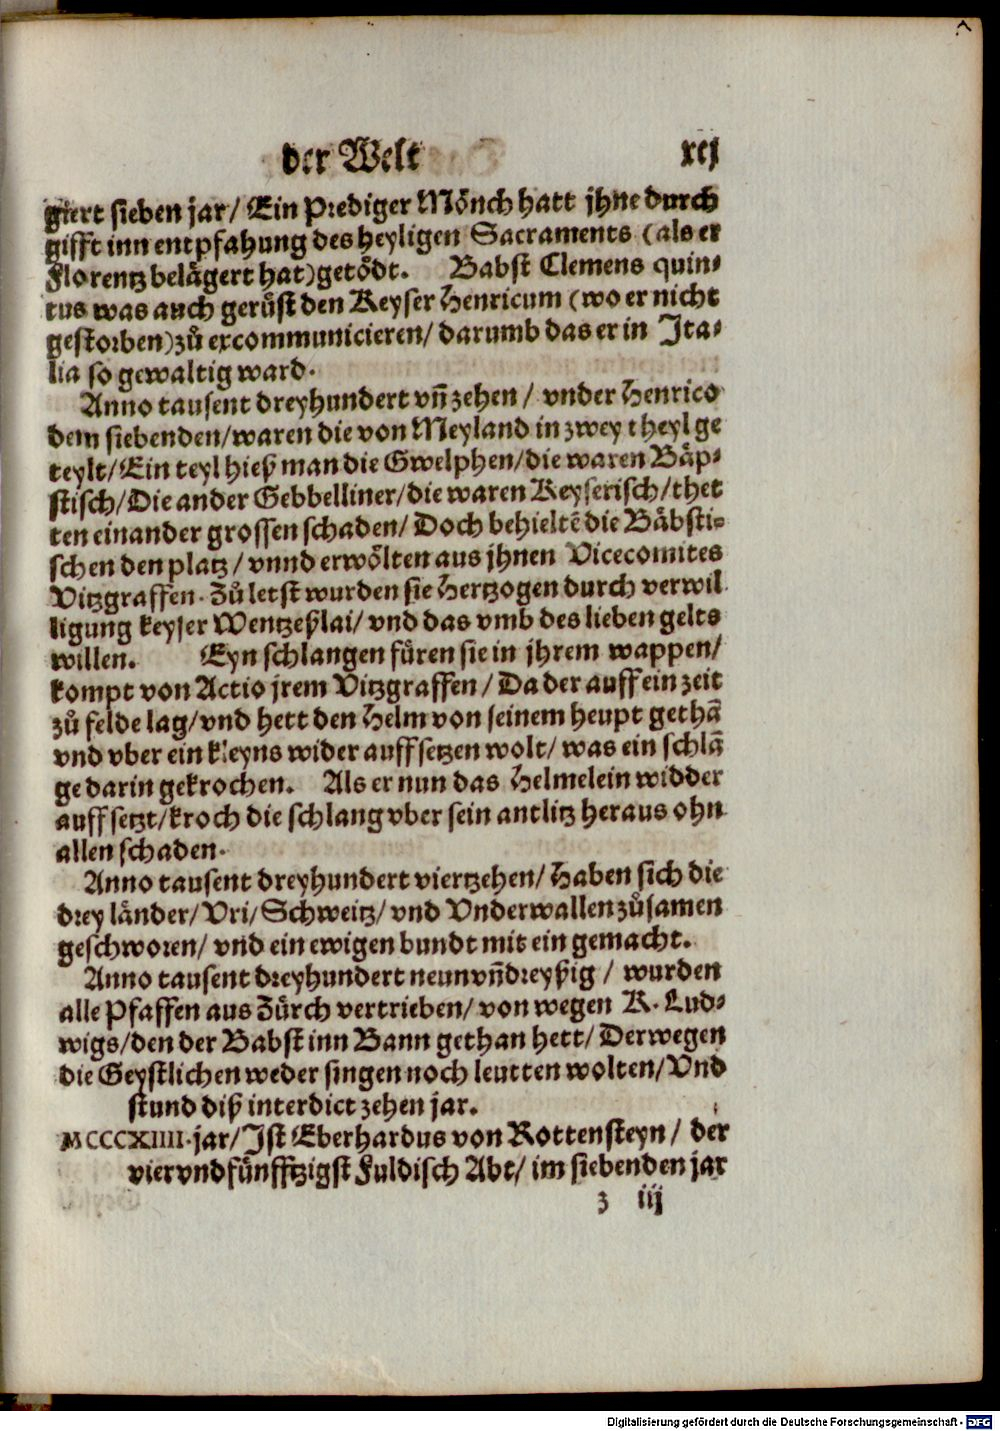 der Welt xcj
giert sieben jar/ Ein Prediger Mönch hatt jhne durch
gifft inn entpfahung des heyligen Sacraments (als er
Florentz belägert hat) getödt. Babst Clemens quin⸗
tus was auch gerůst den Keyser Henricum (wo er nicht
gestorben) zů excommunicieren/ darumb das er in Ita⸗
lia so gewaltig ward.
Anno tausent dreyhundert vn̄ zehen/ vnder Henrico
dem siebenden/ waren die von Meyland in zwey theyl ge
teylt/ Ein teyl hieß man die Gwelphen/ die waren Bäp⸗
stisch/ Die ander Gebbelliner/ die waren Keyserisch/ thet
ten einander grossen schaden/ Doch behieltē die Bäbsti⸗
schen den platz/ vnnd erwölten aus jhnen Vicecomites
Vitzgraffen. Zů letst wurden sie Hertzogen durch verwil
ligung keyser Wentzeßlai/ vnd das vmb des lieben gelts
willen. Eyn schlangen füren sie in jhrem wappen/
kompt von Actio jrem Vitzgraffen/ Da der auff ein zeit
zů felde lag/ vnd hett den Helm von seinem heupt gethā
vnd vber ein kleyns wider auff setzen wolt/ was ein schlā
ge darin gekrochen. Als er nun das Helmelein widder
auff setzt/ kroch die schlang vber sein antlitz heraus ohn
allen schaden.
Anno tausent dreyhundert viertzehen/ Haben sich die
drey länder/ Vri/ Schweitz/ vnd Vnderwallen zůsamen
geschworen/ vnd ein ewigen bundt mit ein gemacht.
Anno tausent dreyhundert neunvn̄dreyßig/ wurden
alle Pfaffen aus Zürch vertrieben/ von wegen K. Lud⸗
wigs/ den der Babst inn Bann gethan hett/ Derwegen
die Geystlichen weder singen noch leutten wolten/ Vnd
stund diß interdict zehen jar.
MCCCXIIII. jar/ Ist Eberhardus von Rottensteyn/ der
vierundfünfftzigst Fuldisch Abt/ im siebenden jar
z iij
Digitalisierung gefördert durch die Deutsche Forschungsgemeinschaft - DFG